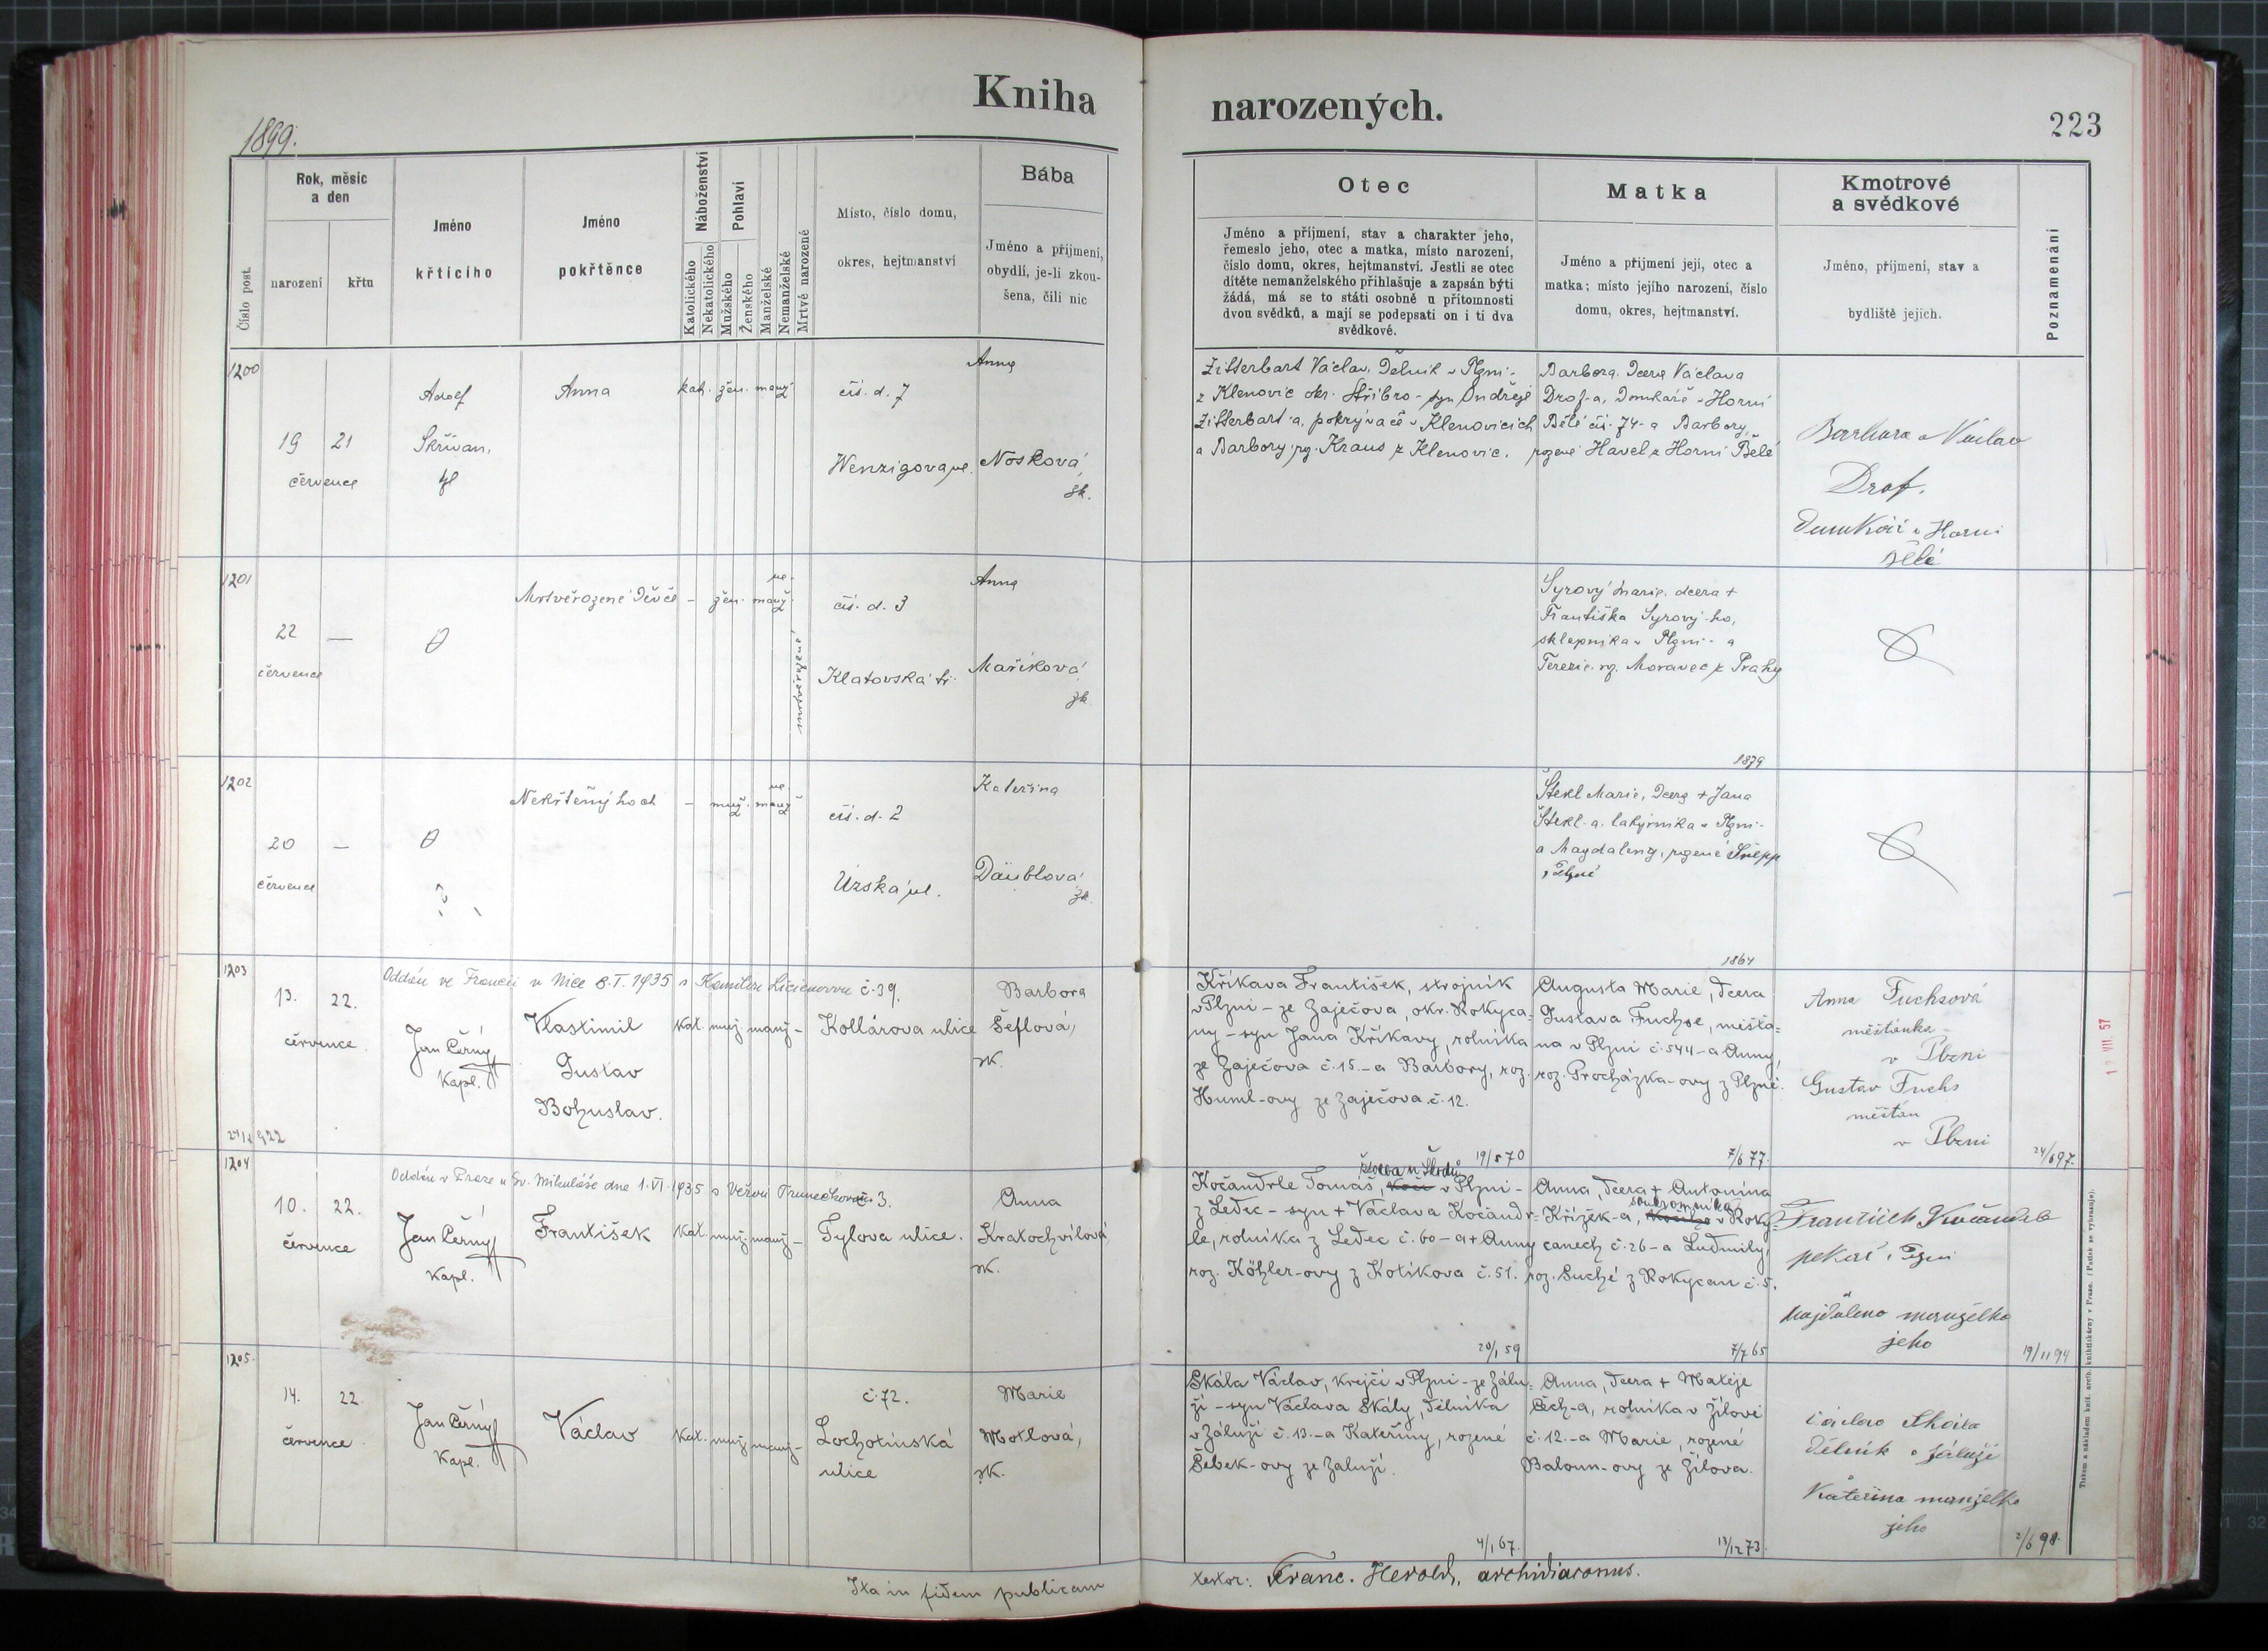 Kniha
narozených.
223
1899.
Číslo post.
Rok, měsíc
a den
narození
křtu
Jméno
křtícího
Jméno
pokřtěnce
Náboženství
Katolického
Nekatolického
Pohlaví
Mužského
Ženského
Manželské
Nemanželské
Mrtvě narozené
Místo, číslo domu,
okres, hejtmanství
Bába
Jméno a příjmení,
obydlí, je-li zkou-
šena, čili nic
Otec
Jméno a příjmení, stav a charakter jeho,
řemeslo jeho, otec a matka, místo narození,
číslo domu, okres, hejtmanství. Jestli se otec
dítěte nemanželského přihlašuje a zapsán býti
žádá, má se to státi osobně u přítomnosti
dvou svědků, a mají se podepsati on i ti dva
svědkové.
Matka
Jméno a příjmení její, otec a
matka; místo jejího narození, číslo
domu, okres, hejtmanství.
Kmotrové
a svědkové
Jméno, příjmení, stav a
bydliště jejich.
Poznamenání
1200
19 21
července
Adolf
Skřivan,
Anna
kat. žen. manž.
čís. d. 7
Wenzigova ul.
Anna
Nosková
zk.
Zitterbart Václav, dělník v Plzni-
z Klenovic okr. Stříbro - syn Ondřeje
Zitterbart-a, pokrývače v Klenovicích
a Barbory, roz. Kraus z Klenovic.
Barbora, dcera Václava
Drof-a, domkáře v Horní
Bělé čís. 74- a Barbory,
rozené Havel z Horní Bělé
Barbora a Václav
Drof.
domkář v Horní
Bělé
1201
22 —
července
Mrtvěrozené děvče
- žen. ne-
manž.
mrtvěrozené
čís. d. 3
Klatovská tř.
Anna
Maříková
zk
Syrový Marie, dcera +
Františka Syrový-ho,
sklepníka v Plzni- a
Terezie, roz. Moravec z Prahy
1879
1202
20 —
července
Nekřtěný hoch
- muž. ne-
manž.
čís. d. 2
Úzská ul.
Kateřina
Däublová
zk.
Štekl Marie, dcera + Jana
Štekl-a, lakýrníka v Plzni-
a Magdaleny, rozené
v Plzni
1864
1203
Oddán ve Francii v Nice 8.I.1935 s
13. 22.
července
Jan Černý
Kapl.
Vlastimil
Gustav
Bohuslav.
kat. muž. manž. -
č. 39.
Kollárova ulice
Barbora
Šeflová,
zk.
Křikava František, strojník
v Plzni - ze Zaječova, okr. Rokyca=
ny - syn Jana Křikavy, rolníka
ze Zaječova č. 15. - a Barbory, roz.
Huml-ovy ze Zaječova č. 12.
19/5 70
Augusta Marie, dcera
Gustava Fuchse, měšťa=
na v Plzni č. 544 - a Anny,
roz. Procházka-ovy z Plzně.
7/6 77.
Anna Fuchsová
měšťanka
v Plzni
Gustav Fuchs
měšťan
v Plzni
24/6 97.
12 VII. 57
1204
Oddán v Praze u Sv. Mikuláše dne 1.VI.1935 s Věrou
10. 22.
července
Jan Černý
Kapl.
František
kat. muž. manž. -
č. 3.
Tylova ulice.
Anna
Kratochvílová,
zk.
Kočandrle Tomáš, kočí v Plzni -
z Ledec - syn + Václava Kočandr=
le, rolníka z Ledec č. 60 - a + Anny
roz. Köhler-ovy z Kotíkova č. 51.
20/1 59
Anna, dcera + Antonína
Křížek-a, v Roky
canech č. 26 - a Ludmily,
roz. Suché z Rokycan č. 5.
7/7 65
František Kočandrle
pekař v Plzni
Majdalena manželka
jeho
19/11 94
1205.
14. 22.
července
Jan Černý
Kapl.
Václav
kat. muž. manž. -
č. 72.
Lochotínská
ulice
Marie
Motlová,
zk.
Skála Václav, krejčí v Plzni - ze Zálu=
ží - syn Václava Skály, dělníka
v Záluží č. 13. - a Kateřiny, rozené
Šebek-ovy ze Záluží.
4/1 67.
Anna, dcera + Matěje
Čech-a, rolníka v Žilově
č. 12. - a Marie, rozené
Baloun-ovy ze Žilova.
13/12 73.
Václav Skála
dělník v Záluží
Kateřina manželka
jeho
2/6 98.
Ita in fidem publicam
testor: Franc. Herold, archidiaconus.